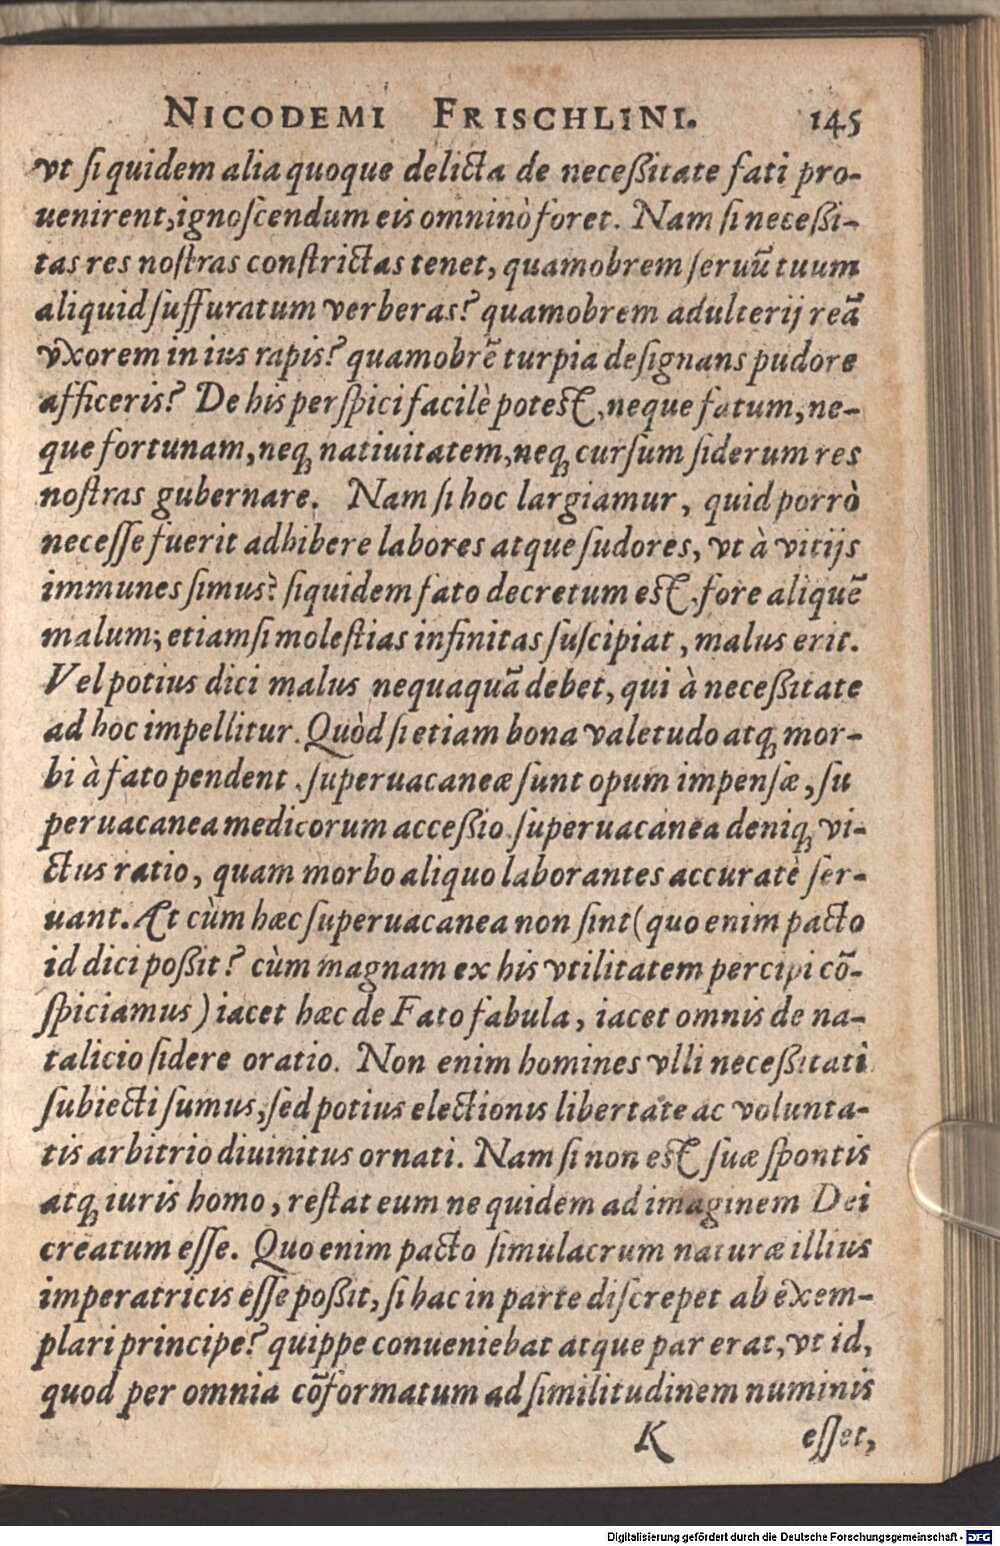 NICODEMI FRISCHLINI. 145
vt ſi quidem alia quoque delicta de neceßitate fati pro-
uenirent, ignoſcendum eis omninò foret. Nam ſi neceßi-
tas res noſtras conſtrictas tenet, quamobrem ſeruū tuum
aliquid ſuffuratum verberas? quamobrem adulterij reā
vxorem in ius rapis? quamobrē turpia deſignans pudore
afficeris? De his perſpici facilè poteſt, neque fatum, ne-
que fortunam, neq; natiuitatem, neq; curſum ſiderum res
noſtras gubernare. Nam ſi hoc largiamur, quid porrò
neceſſe fuerit adhibere labores atque ſudores, vt à vitijs
immunes ſimus? ſiquidem fato decretum eſt, fore aliquē
malum; etiamſi moleſtias infinitas ſuſcipiat, malus erit.
Vel potius dici malus nequaquā debet, qui à neceßitate
ad hoc impellitur. Quòd ſi etiam bona valetudo atq; mor-
bi à fato pendent, ſuperuacaneæ ſunt opum impenſæ, ſu
peruacanea medicorum acceßio, ſuperuacanea deniq; vi-
ctus ratio, quam morbo aliquo laborantes accuratè ſer-
uant. At cùm hæc ſuperuacanea non ſint (quo enim pacto
id dici poßit? cùm magnam ex his vtilitatem percipi cō-
ſpiciamus) iacet hæc de Fato fabula, iacet omnis de na-
talicio ſidere oratio. Non enim homines vlli neceßitati
ſubiecti ſumus, ſed potius electionis libertate ac volunta-
tis arbitrio diuinitus ornati. Nam ſi non eſt ſuæ ſpontis
atq; iuris homo, reſtat eum ne quidem ad imaginem Dei
creatum eſſe. Quo enim pacto ſimulacrum naturæ illius
imperatricis eſſe poßit, ſi hac in parte diſcrepet ab exem-
plari principe? quippe conueniebat atque par erat, vt id,
quod per omnia cōformatum ad ſimilitudinem numinis
K eſſet,
Digitalisierung gefördert durch die Deutsche Forschungsgemeinschaft - DFG